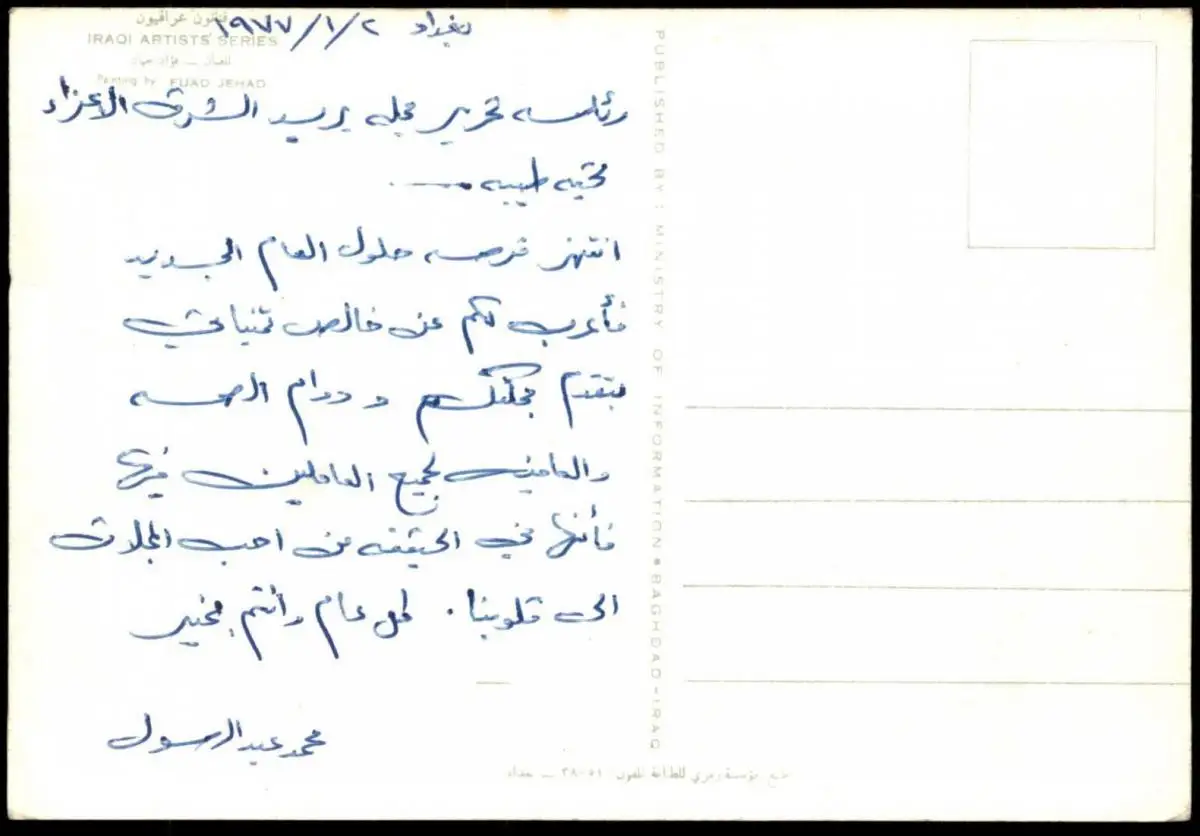 فنانون عراقيون
IRAQI ARTISTS SERIES
للفنان — فؤاد جهاد
Painting by FUAD JEHAD
بغداد ١٩٧٧/١/٢
رئاسه تحرير مجله بريد الشرق الاعزاء
تحيه طيبه
انتهز فرصه حلول العام الجديد
فأعرب لكم عن خالص تمنياتي
بتقدم مجلتكم و دوام الصحه
والعافيه لجميع العاملين فيها
فأنها في الحقيقه من احب المجلات
الى قلوبنا . كل عام وأنتم بخير
محمد عبد الرسول
PUBLISHED BY : MINISTRY OF INFORMATION • BAGHDAD - IRAQ
طبع مؤسسة رمزي للطباعة تلفون : ٣٨٠٥١ — بغداد